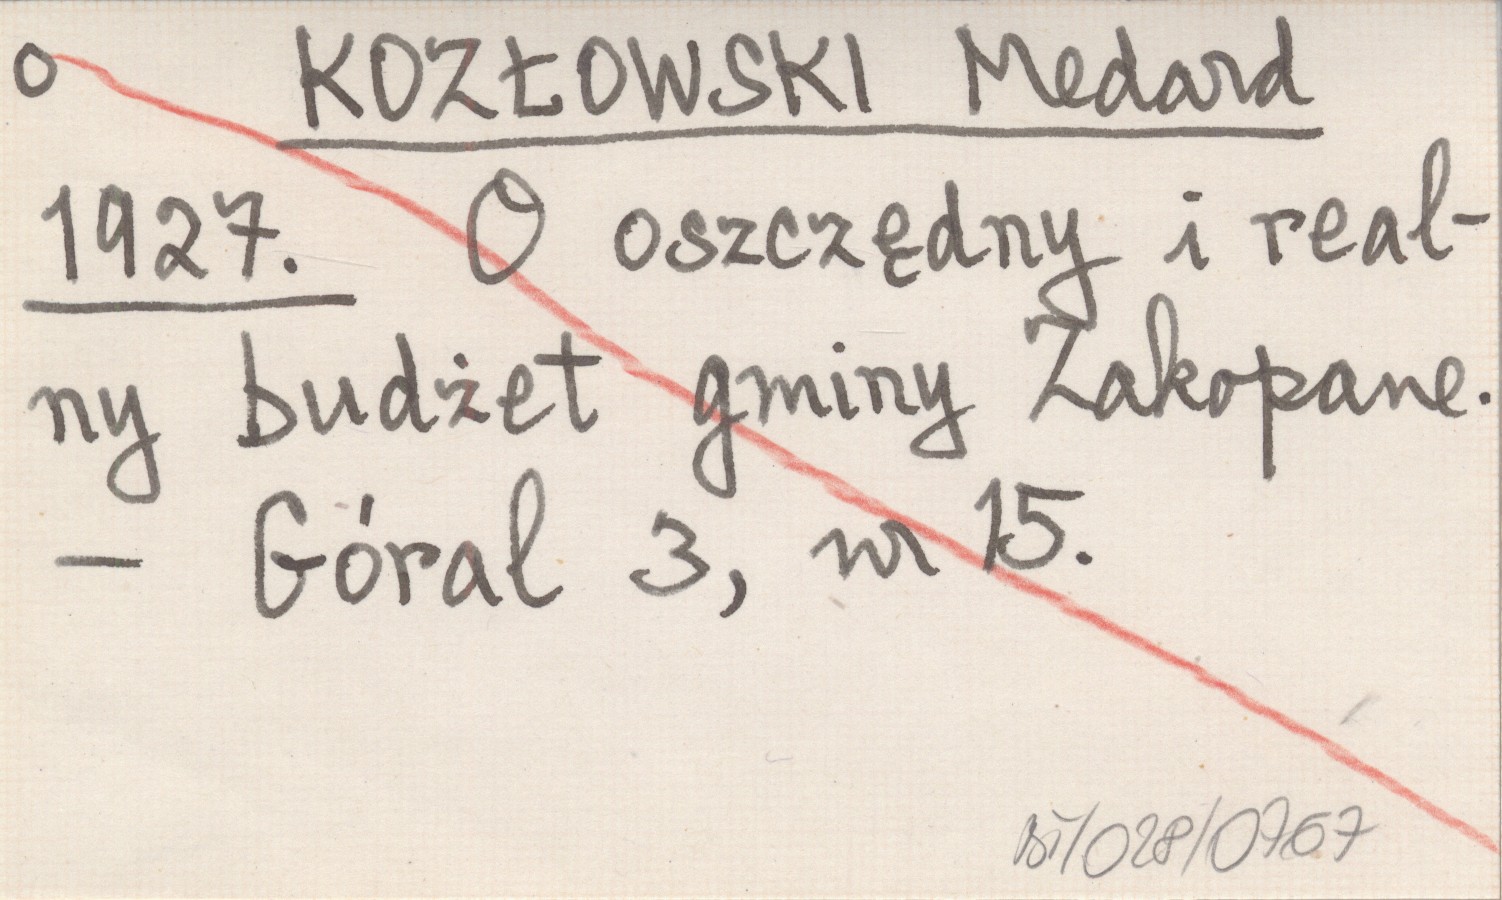 o KOZŁOWSKI Medard
1927. O oszczędny i real-
ny budżet gminy Zakopane.
— Góral 3, nr 15.
BŤ/028/0767